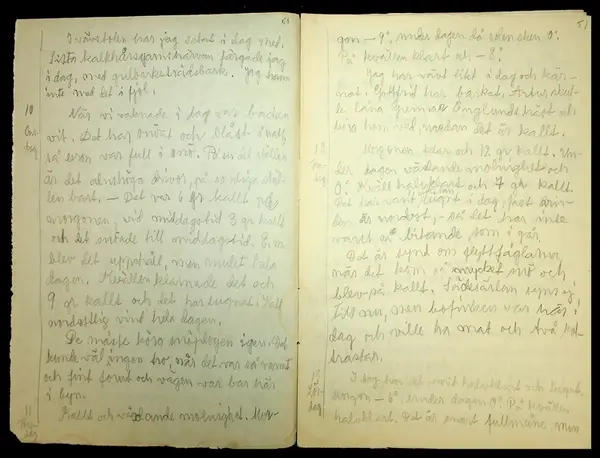 50
I vävstolen har jag satat i dag med.
Sista kalkhårsgarnshärvan färgade jag
i dag, med gulbarksträdsbark. Jag hann
inte med det i fjol.
10
Ons-
dag
När vi vaknade i dag var backen
vit. Det har snöat och blåst i natt,
så eron var full i snö. På en del ställen
är det alnshöga drivor, på somliga stäl-
len bart. – Det var 6 gr kallt på
morgonen, vid middagstid 3 gr kallt
och det snöade till middagstid. Sen
blev det uppehåll, men mulet hela
dagen. Kvällen klarnade det och
9 gr kallt och det har lugnat. Kall
nordostlig vind hela dagen.
De måste köra snöplogen igen. Det
kunde väl ingen tro, när det var så varmt
och fint förut och vägen var bar här
i byn.
11
Tors-
dag
Kallt och växlande molnighet. Mor-
51
gon – 9°, under dagen då solen sken 0°.
På kvällen klart och – 8°.
Jag har vävt litet i dag och kär-
nat. Gottfrid har barkat. Artur skul-
le låna Gunnar Englunds häst och
köra hem ved, medan det är kallt.
12
Fre-
dag
Morgonen klar och 12 gr kallt. Un-
der dagen växlande molnighet och
0°. Kväll halvklart och 7 gr kallt.
Det har varit lugnt i dag, fast vin-
den är nordost, så det har inte
varit så bitande som i går.
Det är synd om flyttfåglarna
när det kom så mycket snö och
blev så kallt. Sädesärlan syns ej
till nu, men bofinken var här i
dag och ville ha mat och två kol-
trastar.
13
Lör-
dag
I dag har det varit halvklart och lugnt.
Morgon – 6°, under dagen 0°. På kvällen
halvklart. Det är snart fullmåne, men